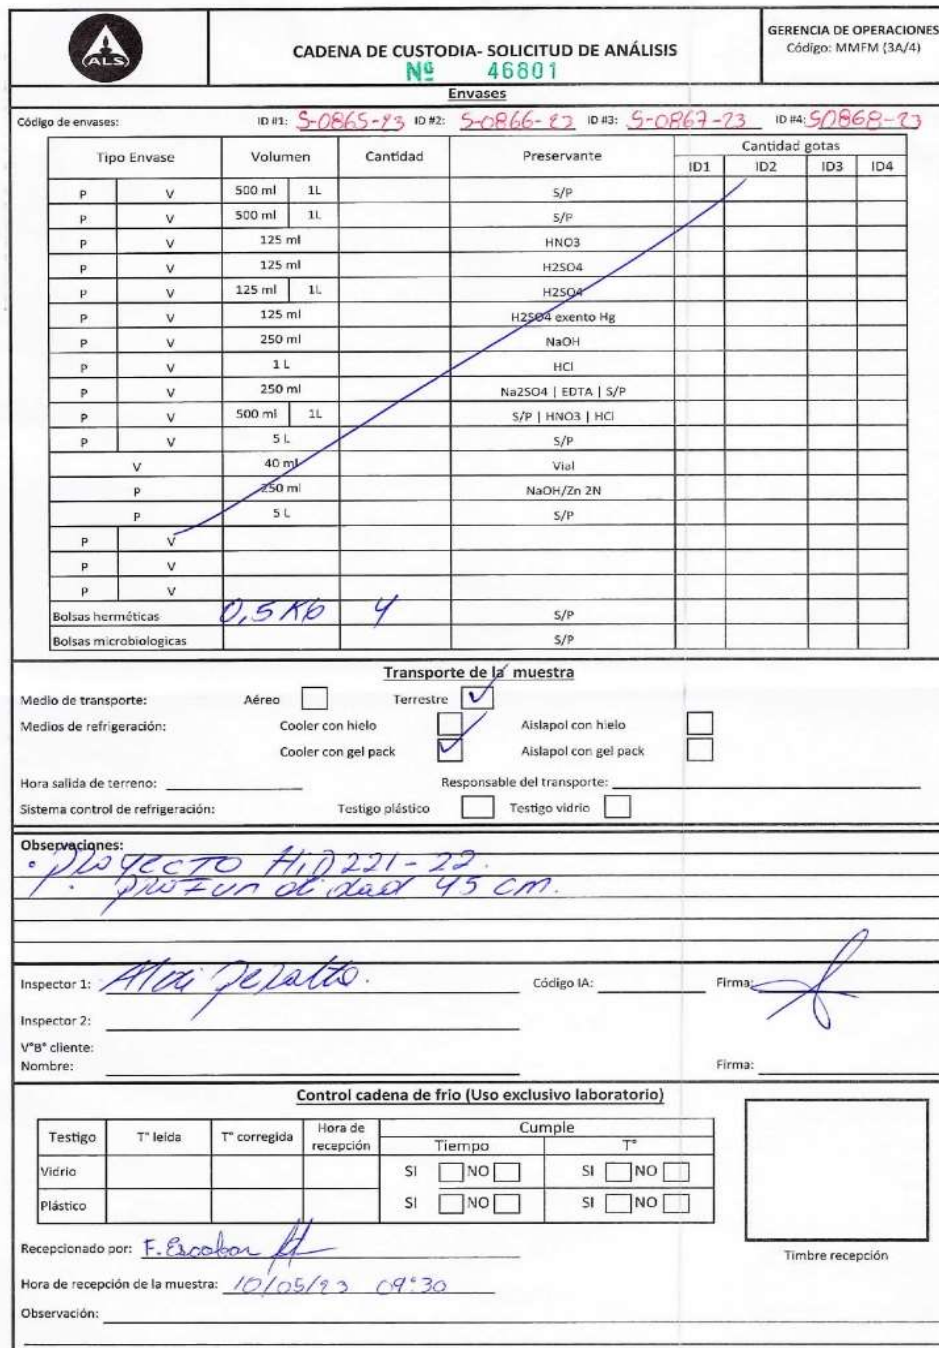 ALS
CADENA DE CUSTODIA- SOLICITUD DE ANÁLISIS
Nº 46801
GERENCIA DE OPERACIONES
Código: MMFM (3A/4)
Envases
Código de envases: ID #1: S-0865-23 ID #2: S-0866-23 ID #3: S-0867-23 ID #4: S0868-23
Tipo Envase Volumen Cantidad Preservante Cantidad gotas
ID1 ID2 ID3 ID4
P V 500 ml 1L S/P
P V 500 ml 1L S/P
P V 125 ml HNO3
P V 125 ml H2SO4
P V 125 ml 1L H2SO4
P V 125 ml H2SO4 exento Hg
P V 250 ml NaOH
P V 1 L HCl
P V 250 ml Na2SO4 | EDTA | S/P
P V 500 ml 1L S/P | HNO3 | HCl
P V 5 L S/P
V 40 ml Vial
P 250 ml NaOH/Zn 2N
P 5 L S/P
P V
P V
P V
Bolsas herméticas 0,5 KG 4 S/P
Bolsas microbiologicas S/P
Transporte de la muestra
Medio de transporte: Aéreo Terrestre ✓
Medios de refrigeración: Cooler con hielo Aislapol con hielo
Cooler con gel pack ✓ Aislapol con gel pack
Hora salida de terreno: Responsable del transporte:
Sistema control de refrigeración: Testigo plástico Testigo vidrio
Observaciones:
• proyecto HID221-22.
• profundidad 45 cm.
Inspector 1: Peralta. Código IA: Firma:
Inspector 2:
V°B° cliente:
Nombre: Firma:
Control cadena de frio (Uso exclusivo laboratorio)
Testigo T° leída T° corregida Hora de recepción Cumple
Tiempo T°
Vidrio SI NO SI NO
Plástico SI NO SI NO
Recepcionado por: F. Escobar
Timbre recepción
Hora de recepción de la muestra: 10/05/23 09:30
Observación: